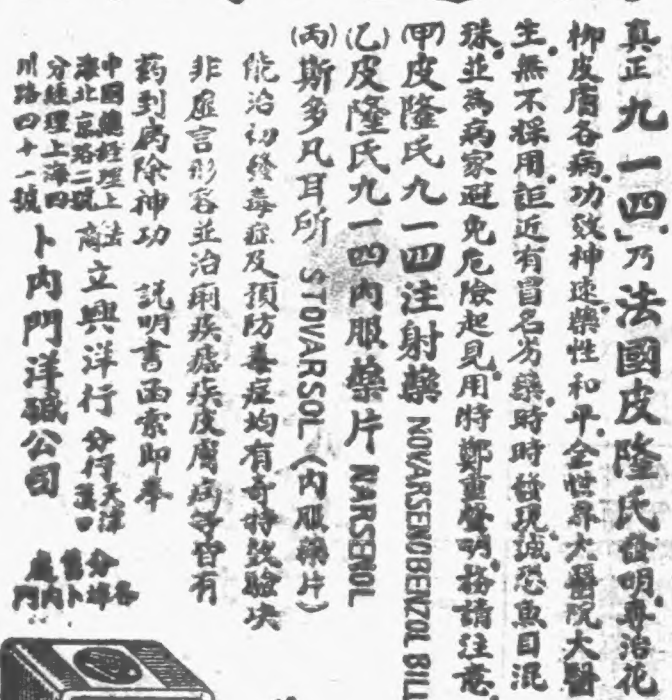 真正九一四」乃法國皮隆氏發明專治花
柳皮膚各病功效神速藥性和平全世界大醫院大醫
生無不採用詎近有冒名劣藥時時發現誠恐魚目混
珠並為病家避免危險起見用特鄭重聲明務請注意
(甲)皮隆氏九一四注射藥 NOVARSENOBENZOL BILL
(乙)皮隆氏九一四內服藥片 NARSENOL
(丙)斯多凡耳所 STOVARSOL(內服藥片)
能治初發毒症及預防毒症均有奇特效驗决
非虛言形容並治痢疾瘧疾皮膚病等皆有
藥到病除神功 說明書函索即奉
中國總經理上海北京路二號
法商立興洋行 分行天津漢口
分經理上海四川路四十一號
卜內門洋碱公司
各埠卜內門
分售處